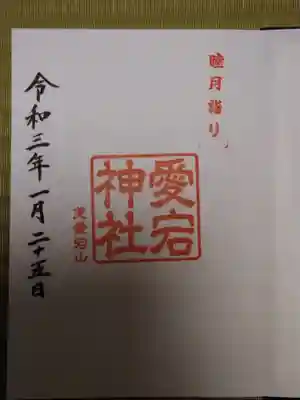 睦月詣り
愛宕
神社
愛宕山
令和三年一月二十五日